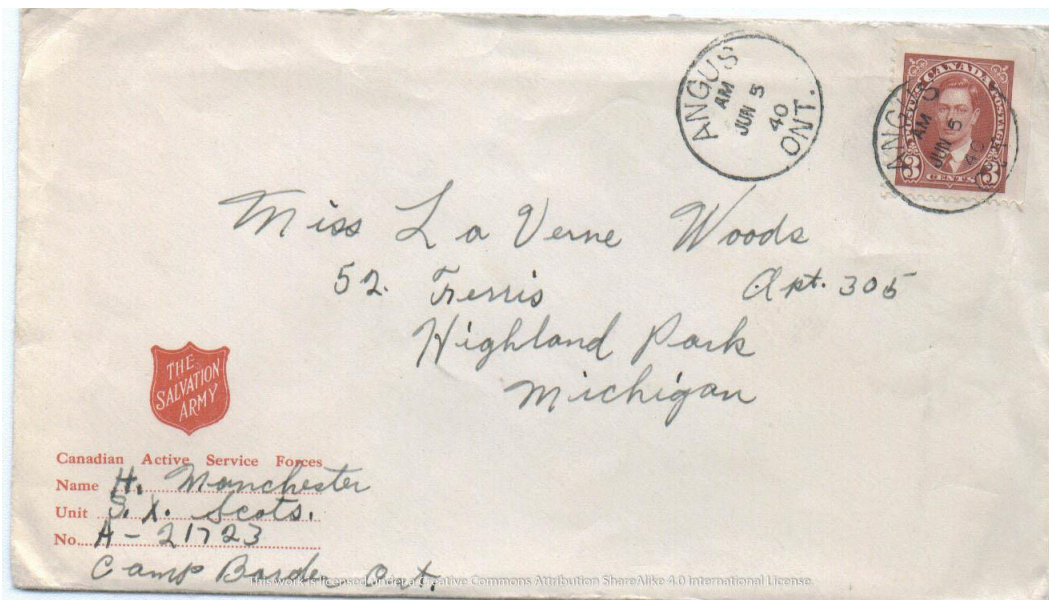 ANGUS
AM
JUN 5
40
ONT.
POSTES CANADA POSTAGE
3 CENTS 3
ANGUS
AM
JUN 5
40
Miss La Verne Woods
52. Ferris Apt. 305
Highland Park
Michigan
THE
SALVATION
ARMY
Canadian Active Service Forces
Name H. Manchester
Unit Scots.
No. A-21723
Camp Borden Ont.
This work is licensed under a Creative Commons Attribution ShareAlike 4.0 International License.